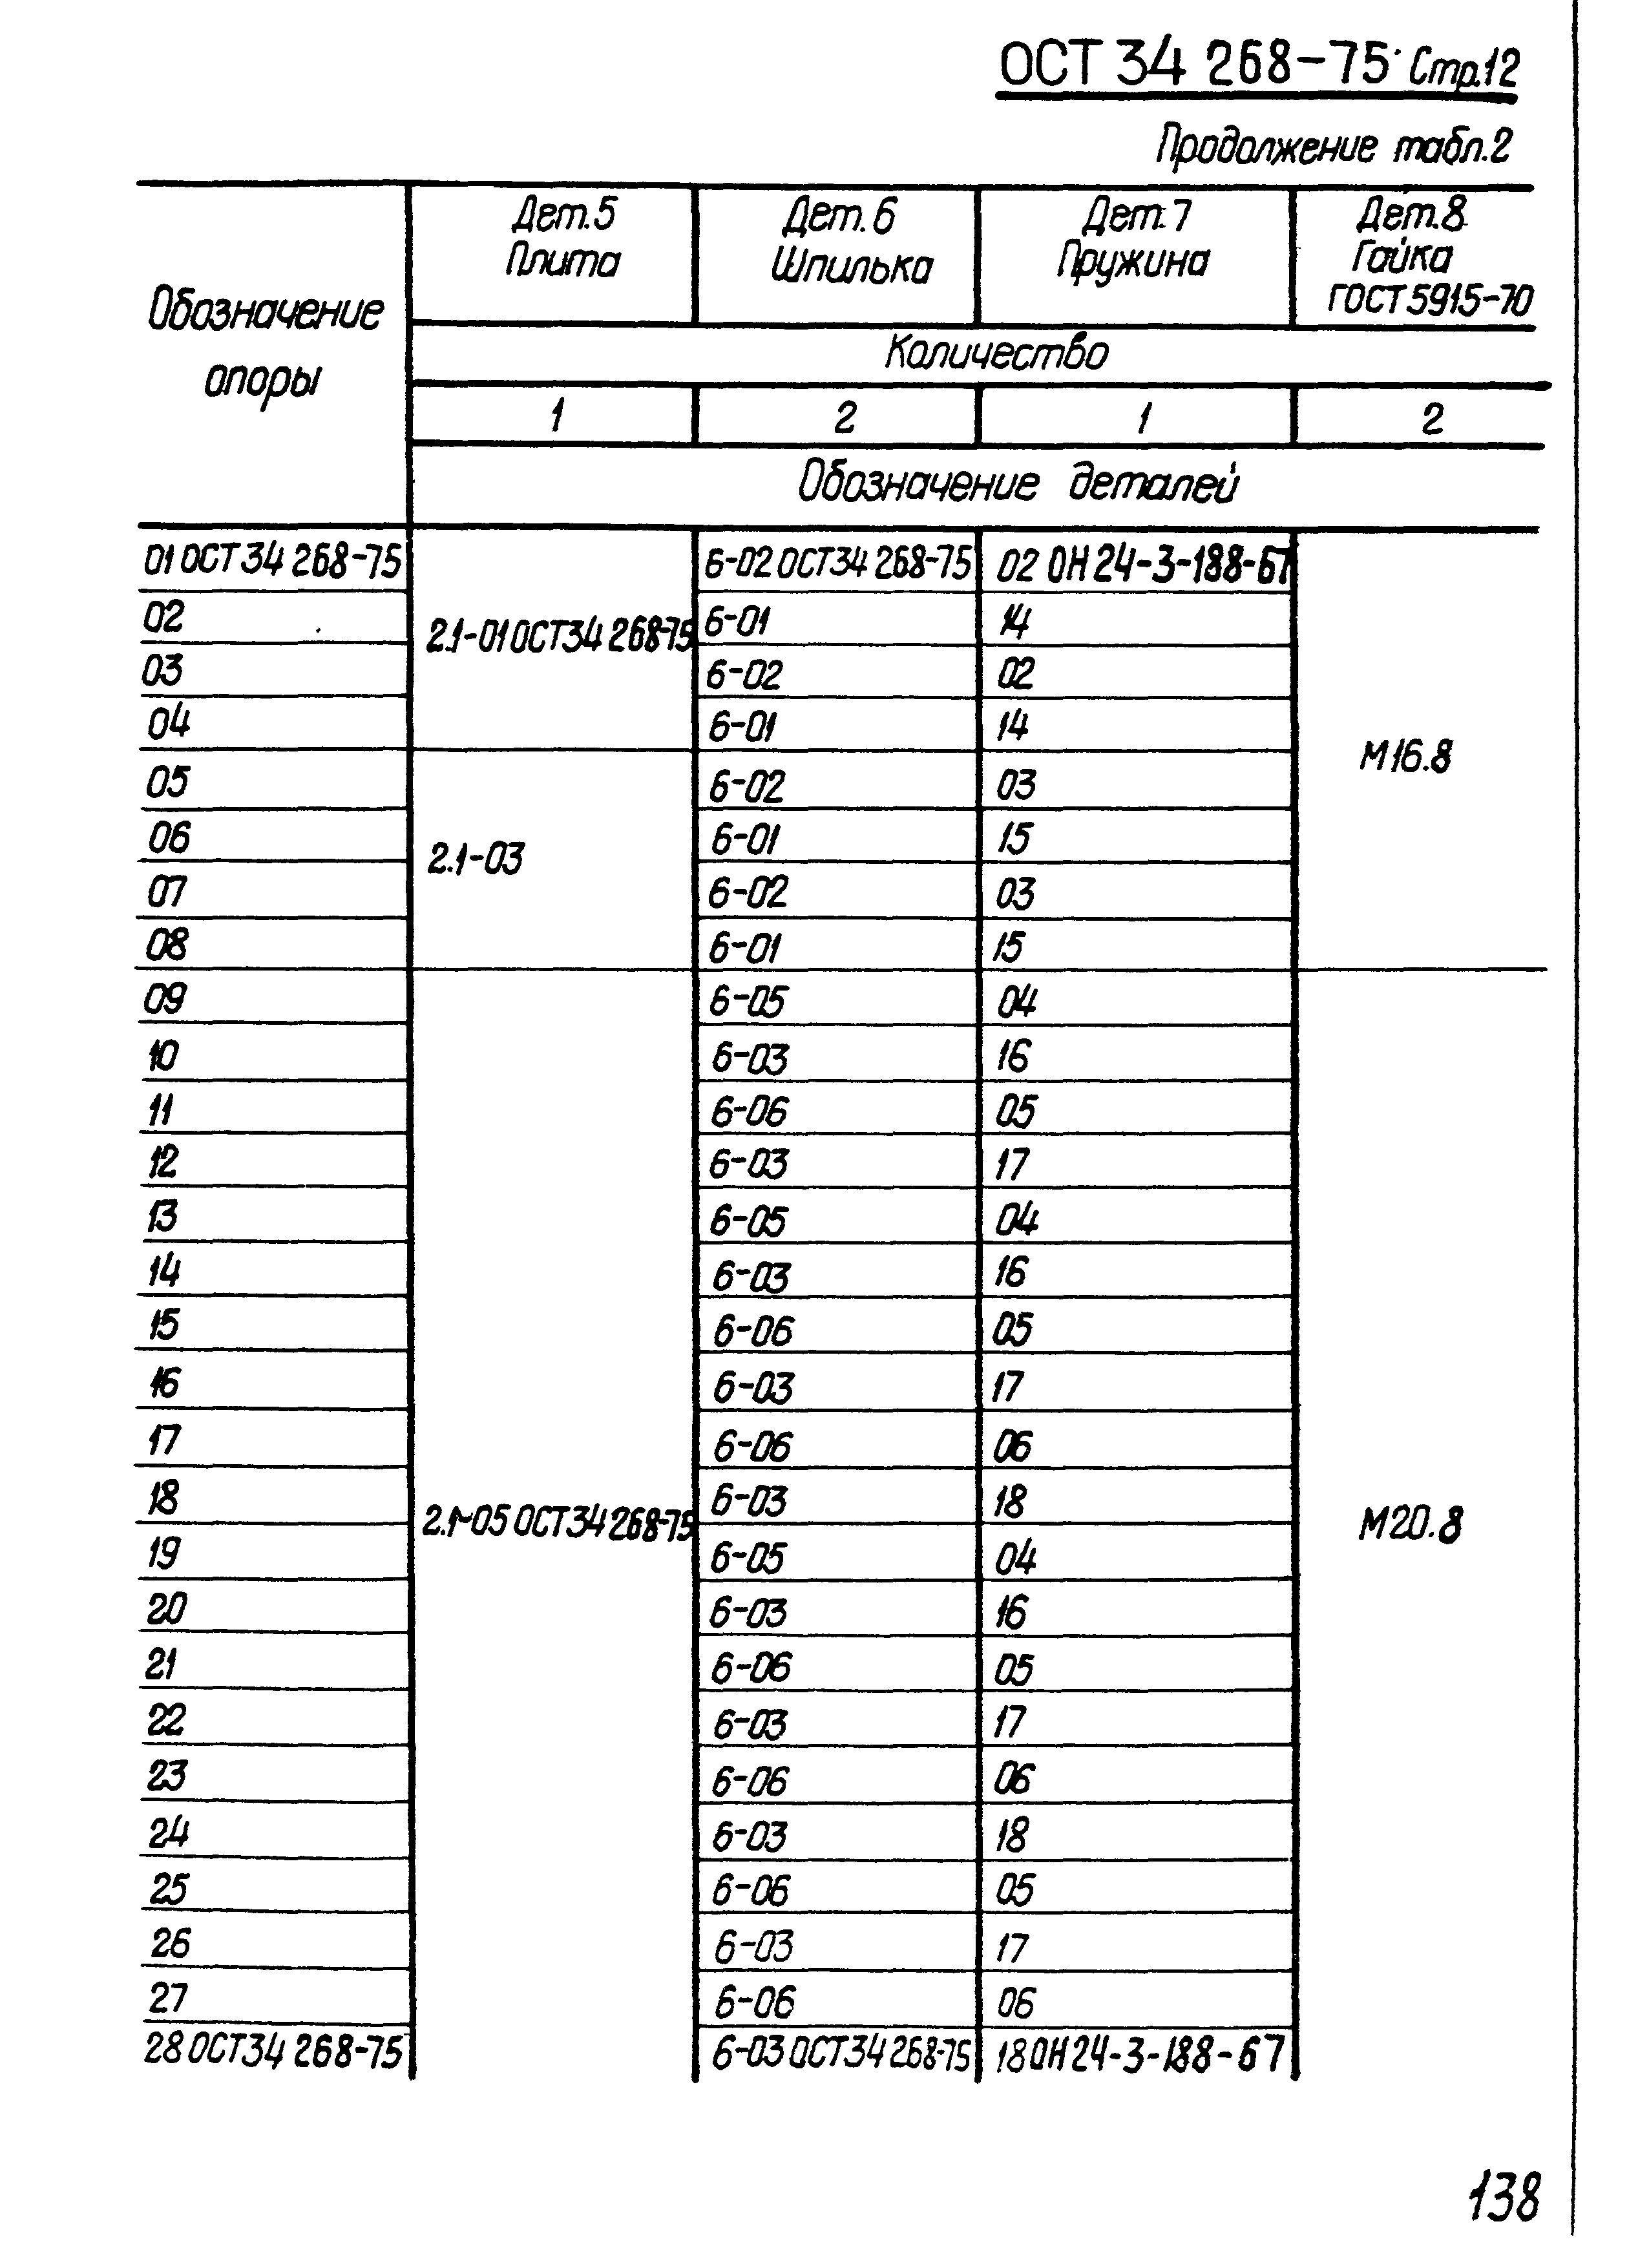 ОСТ 34 268-75 Стр.12
Продолжение табл.2
Обозначение опоры
Дет.5 Плита
Дет.6 Шпилька
Дет.7 Пружина
Дет.8 Гайка ГОСТ 5915-70
Количество
1 2 1 2
Обозначение деталей
01 ОСТ 34 268-75 2.1-01 ОСТ 34 268-75 6-02 ОСТ 34 268-75 02 ОН 24-3-188-67 М16.8
02 6-01 14
03 6-02 02
04 6-01 14
05 2.1-03 6-02 03
06 6-01 15
07 6-02 03
08 6-01 15
09 2.1-05 ОСТ 34 268-75 6-05 04 М20.8
10 6-03 16
11 6-06 05
12 6-03 17
13 6-05 04
14 6-03 16
15 6-06 05
16 6-03 17
17 6-06 06
18 6-03 18
19 6-05 04
20 6-03 16
21 6-06 05
22 6-03 17
23 6-06 06
24 6-03 18
25 6-06 05
26 6-03 17
27 6-06 06
28 ОСТ 34 268-75 6-03 ОСТ 34 268-75 18 ОН 24-3-188-67
138